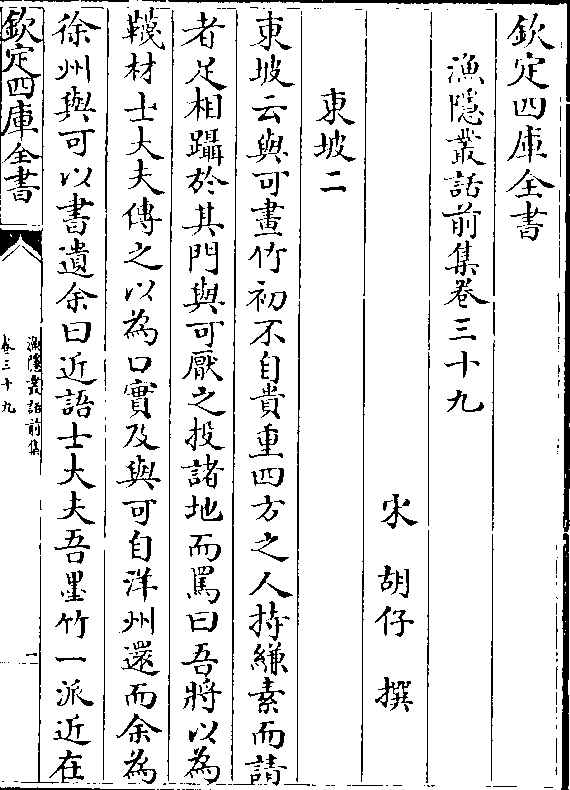 欽定四庫全書
漁隱叢話前集卷三十九
宋 胡仔 撰
東坡二
東坡云與可畫竹初不自貴重四方之人持縑素而請
者足相躡於其門與可厭之投諸地而罵曰吾將以為
韈材士大夫傳之以為口實及與可自洋州還而余為
徐州與可以書遺余曰近語士大夫吾墨竹一派近在
欽定四庫全書
漁隱叢話前集
卷三十九
一